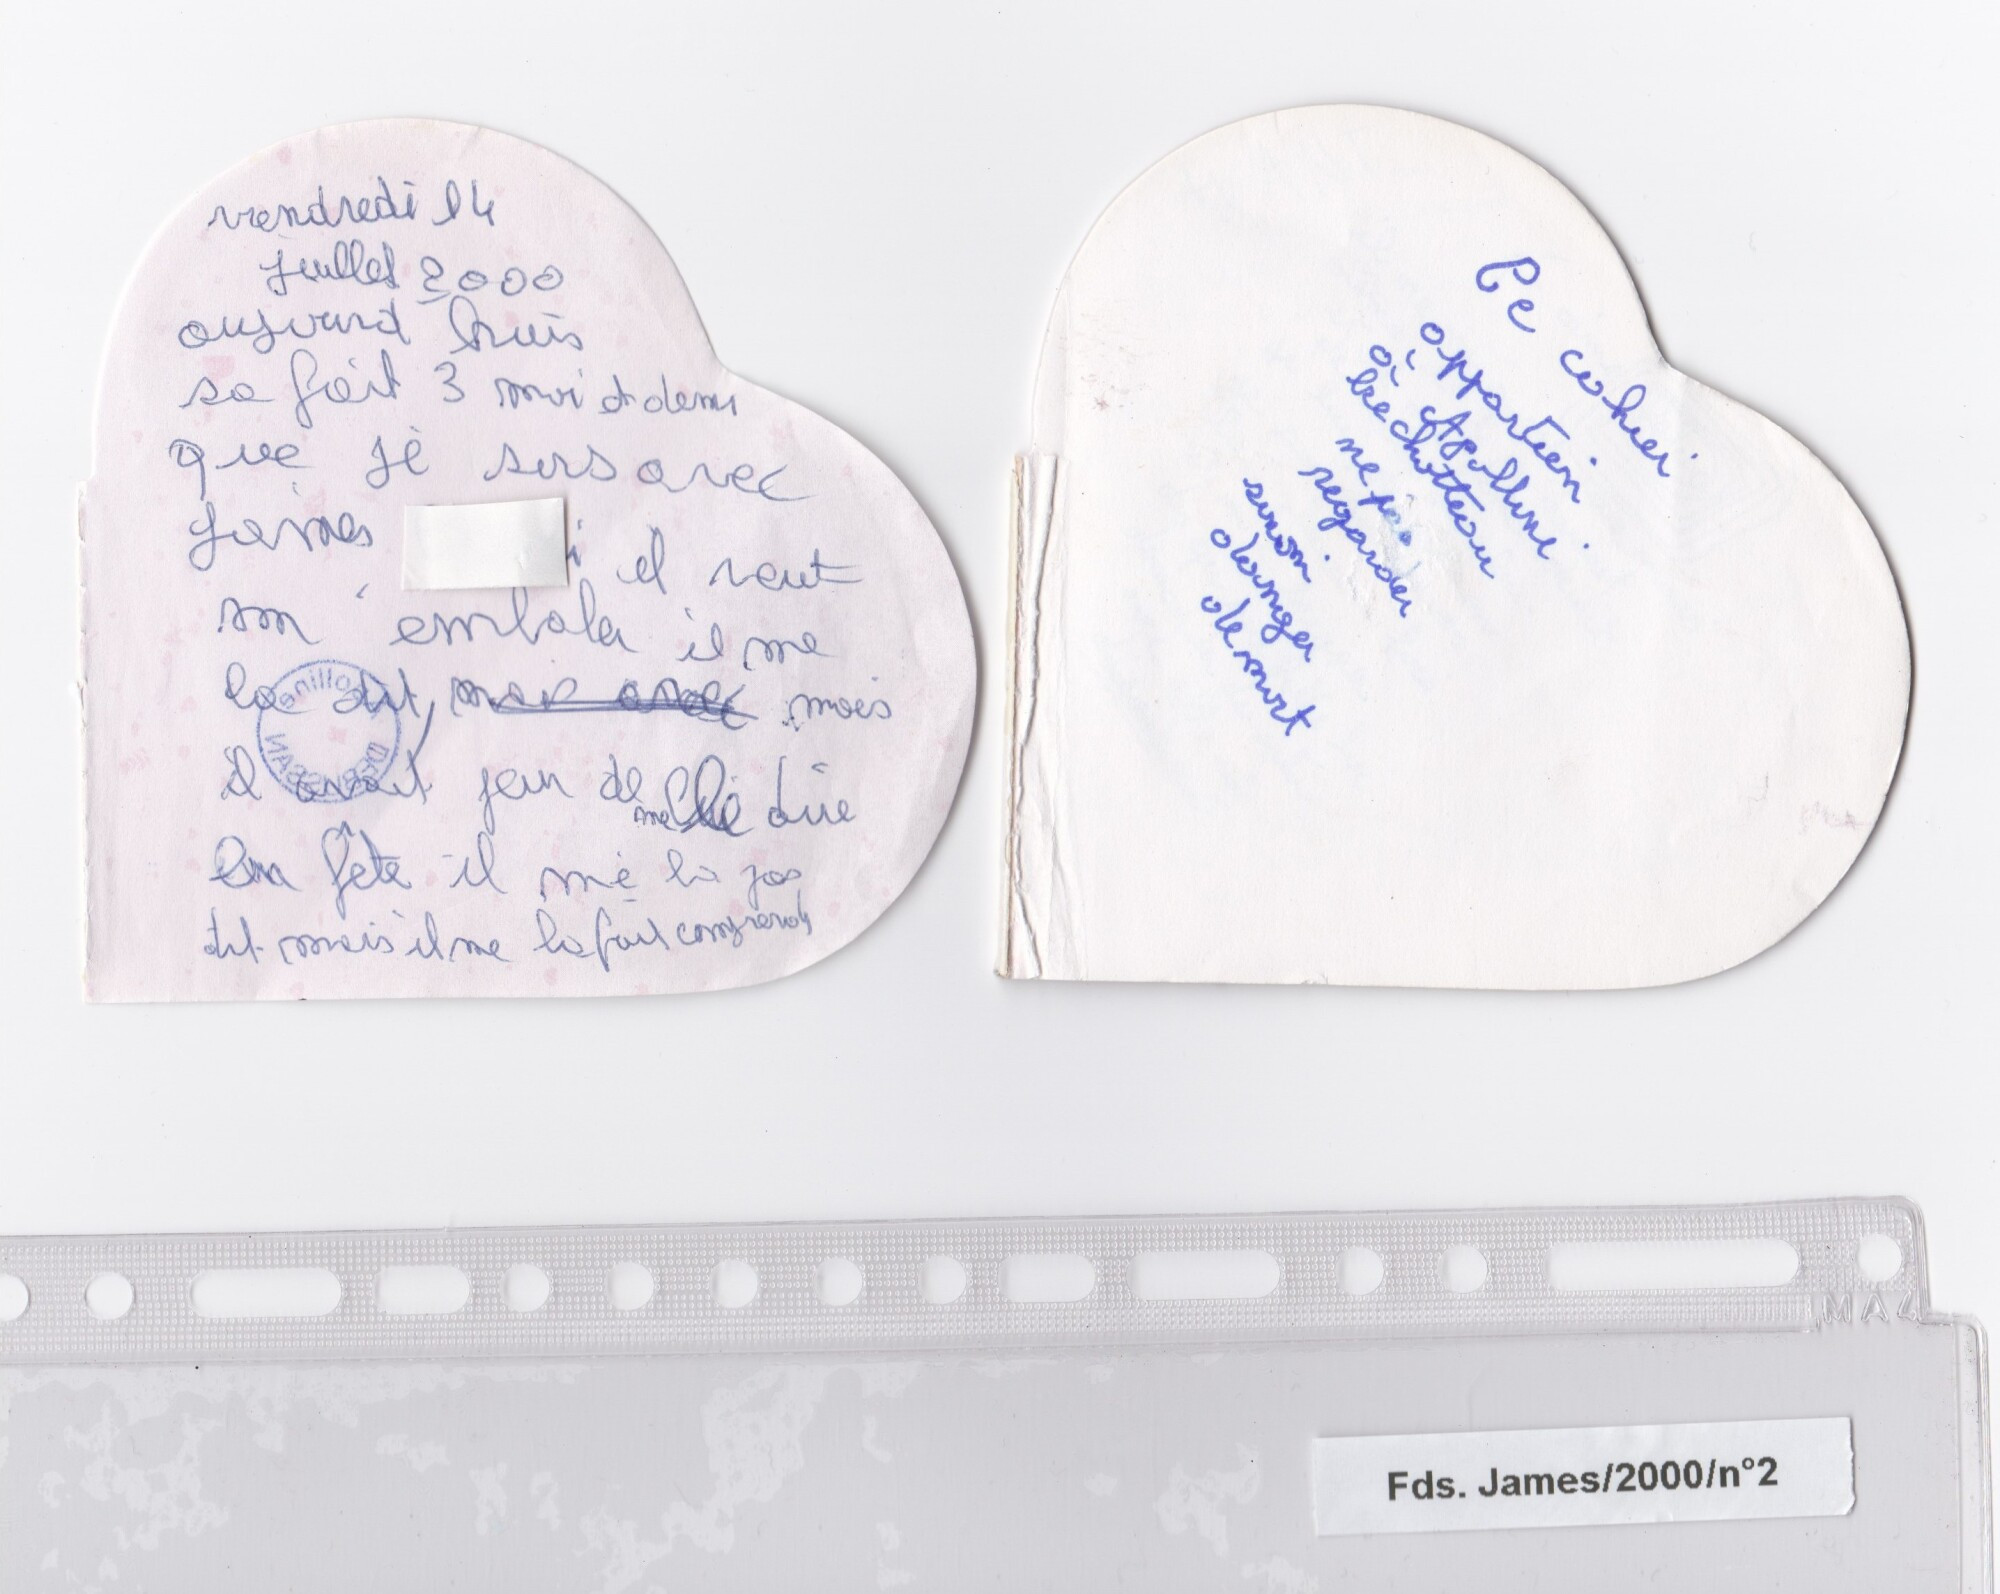 vendredi 14
juillet 2000
aujourd huis
sa fait 3 moi et demi
que je sors avec
James
il veut
m'embala il me
la dit, mais
il avait peur de me dire
En fête il me la pas
dit mais il me la fait comprendre
Ce cahier
appartien
à Apolline
ne pas
regarder
sinon
danger
de mort
Fds. James/2000/n°2